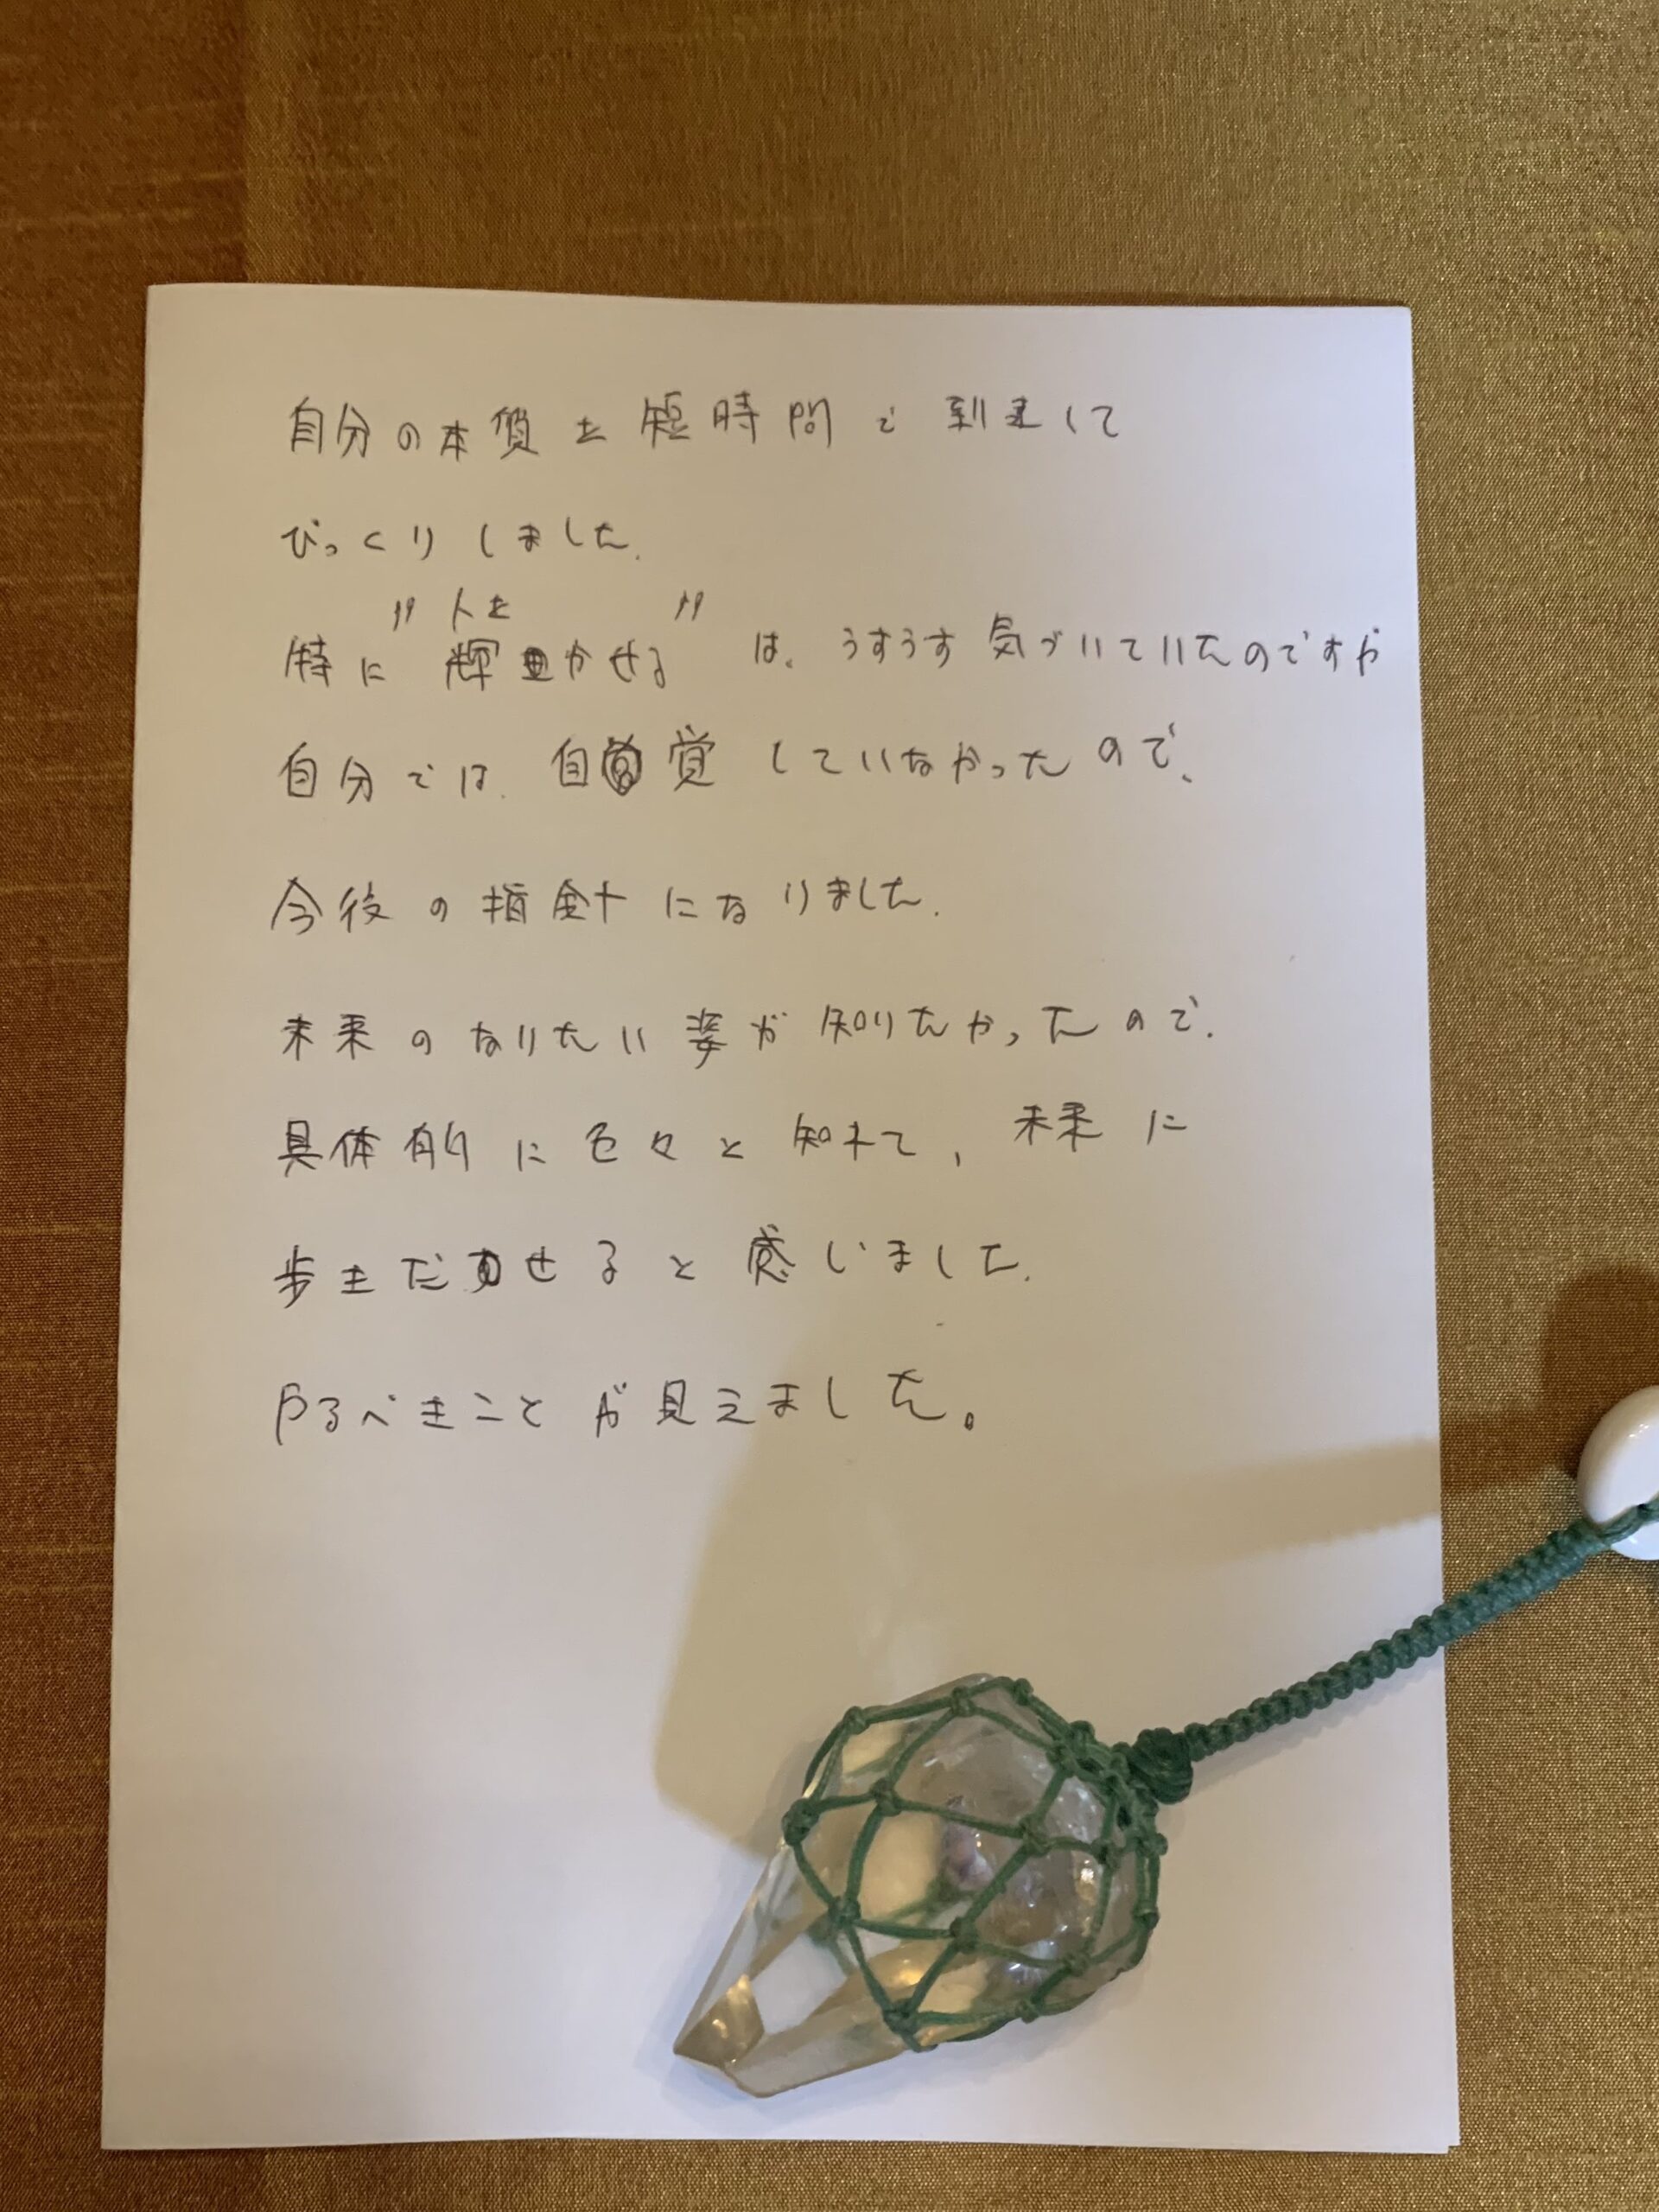 自分の本質を短時間で到達して
びっくりしました.
特に"人を輝かせる"は、うすうす気づいていたのですが
自分では、自覚していなかったので、
今後の指針になりました.
未来のなりたい姿が知りたかったので.
具体的に色々と知れて、未来に
歩まだせると感じました.
やるべきことが見えました。